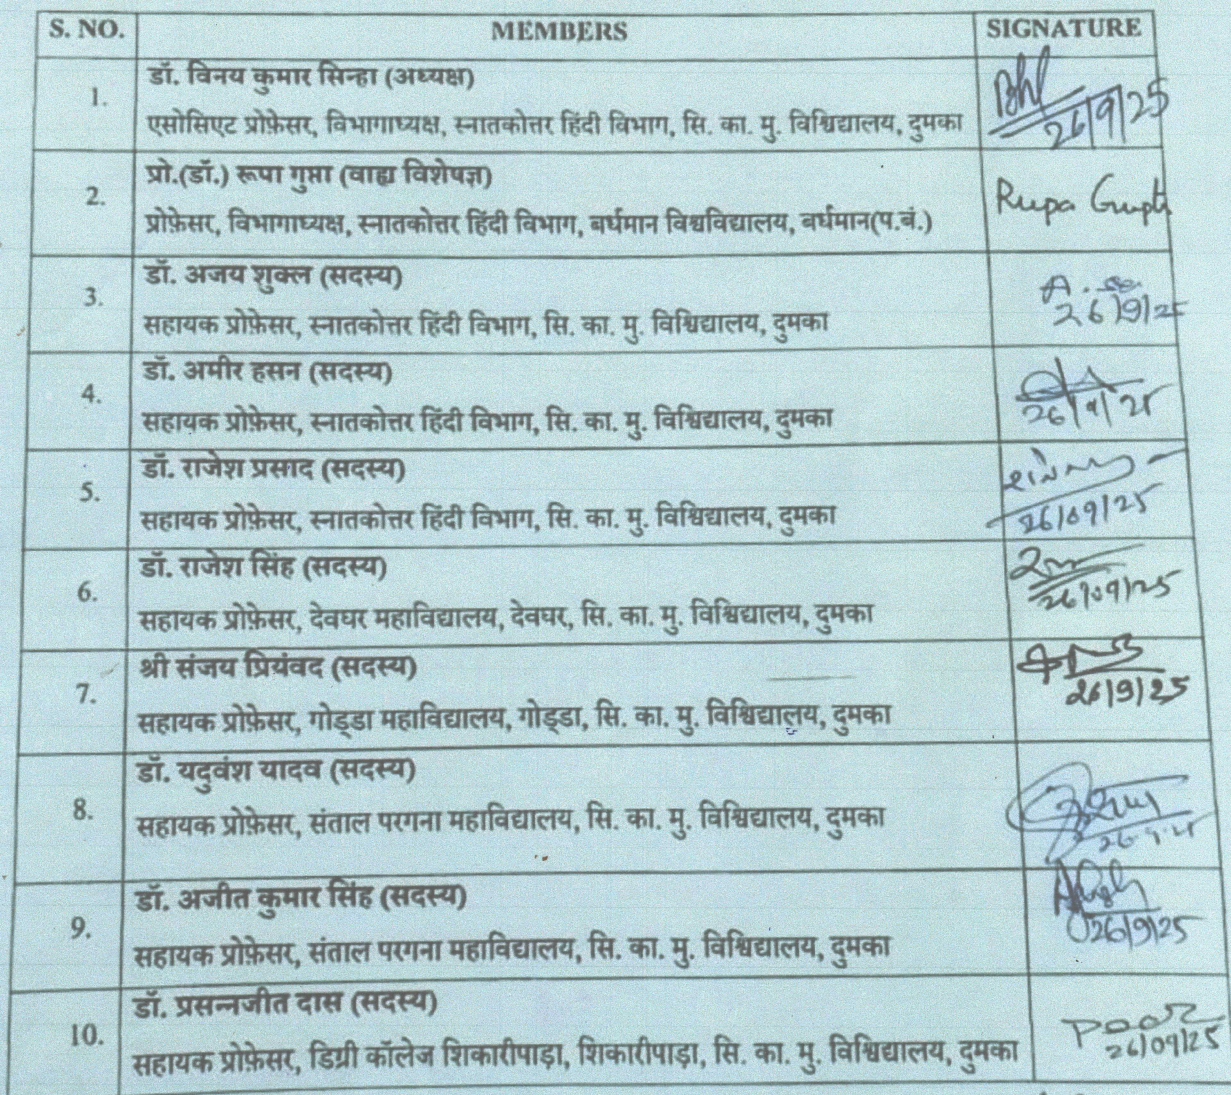 S. NO. MEMBERS SIGNATURE
1. डॉ. विनय कुमार सिन्हा (अध्यक्ष)
एसोसिएट प्रोफ़ेसर, विभागाध्यक्ष, स्नातकोत्तर हिंदी विभाग, सि. का. मु. विश्विद्यालय, दुमका
26/9/25
2. प्रो.(डॉ.) रूपा गुप्ता (वाह्य विशेषज्ञ)
प्रोफ़ेसर, विभागाध्यक्ष, स्नातकोत्तर हिंदी विभाग, बर्धमान विश्वविद्यालय, बर्धमान(प.बं.)
Rupa Gupta
3. डॉ. अजय शुक्ल (सदस्य)
सहायक प्रोफ़ेसर, स्नातकोत्तर हिंदी विभाग, सि. का. मु. विश्विद्यालय, दुमका
26/9/25
4. डॉ. अमीर हसन (सदस्य)
सहायक प्रोफ़ेसर, स्नातकोत्तर हिंदी विभाग, सि. का. मु. विश्विद्यालय, दुमका
26/9/25
5. डॉ. राजेश प्रसाद (सदस्य)
सहायक प्रोफ़ेसर, स्नातकोत्तर हिंदी विभाग, सि. का. मु. विश्विद्यालय, दुमका
26/09/25
6. डॉ. राजेश सिंह (सदस्य)
सहायक प्रोफ़ेसर, देवघर महाविद्यालय, देवघर, सि. का. मु. विश्विद्यालय, दुमका
26/09/25
7. श्री संजय प्रियंवद (सदस्य)
सहायक प्रोफ़ेसर, गोड्डा महाविद्यालय, गोड्डा, सि. का. मु. विश्विद्यालय, दुमका
26/9/25
8. डॉ. यदुवंश यादव (सदस्य)
सहायक प्रोफ़ेसर, संताल परगना महाविद्यालय, सि. का. मु. विश्विद्यालय, दुमका
26.9.25
9. डॉ. अजीत कुमार सिंह (सदस्य)
सहायक प्रोफ़ेसर, संताल परगना महाविद्यालय, सि. का. मु. विश्विद्यालय, दुमका
26/9/25
10. डॉ. प्रसन्नजीत दास (सदस्य)
सहायक प्रोफ़ेसर, डिग्री कॉलेज शिकारीपाड़ा, शिकारीपाड़ा, सि. का. मु. विश्विद्यालय, दुमका
26/09/25